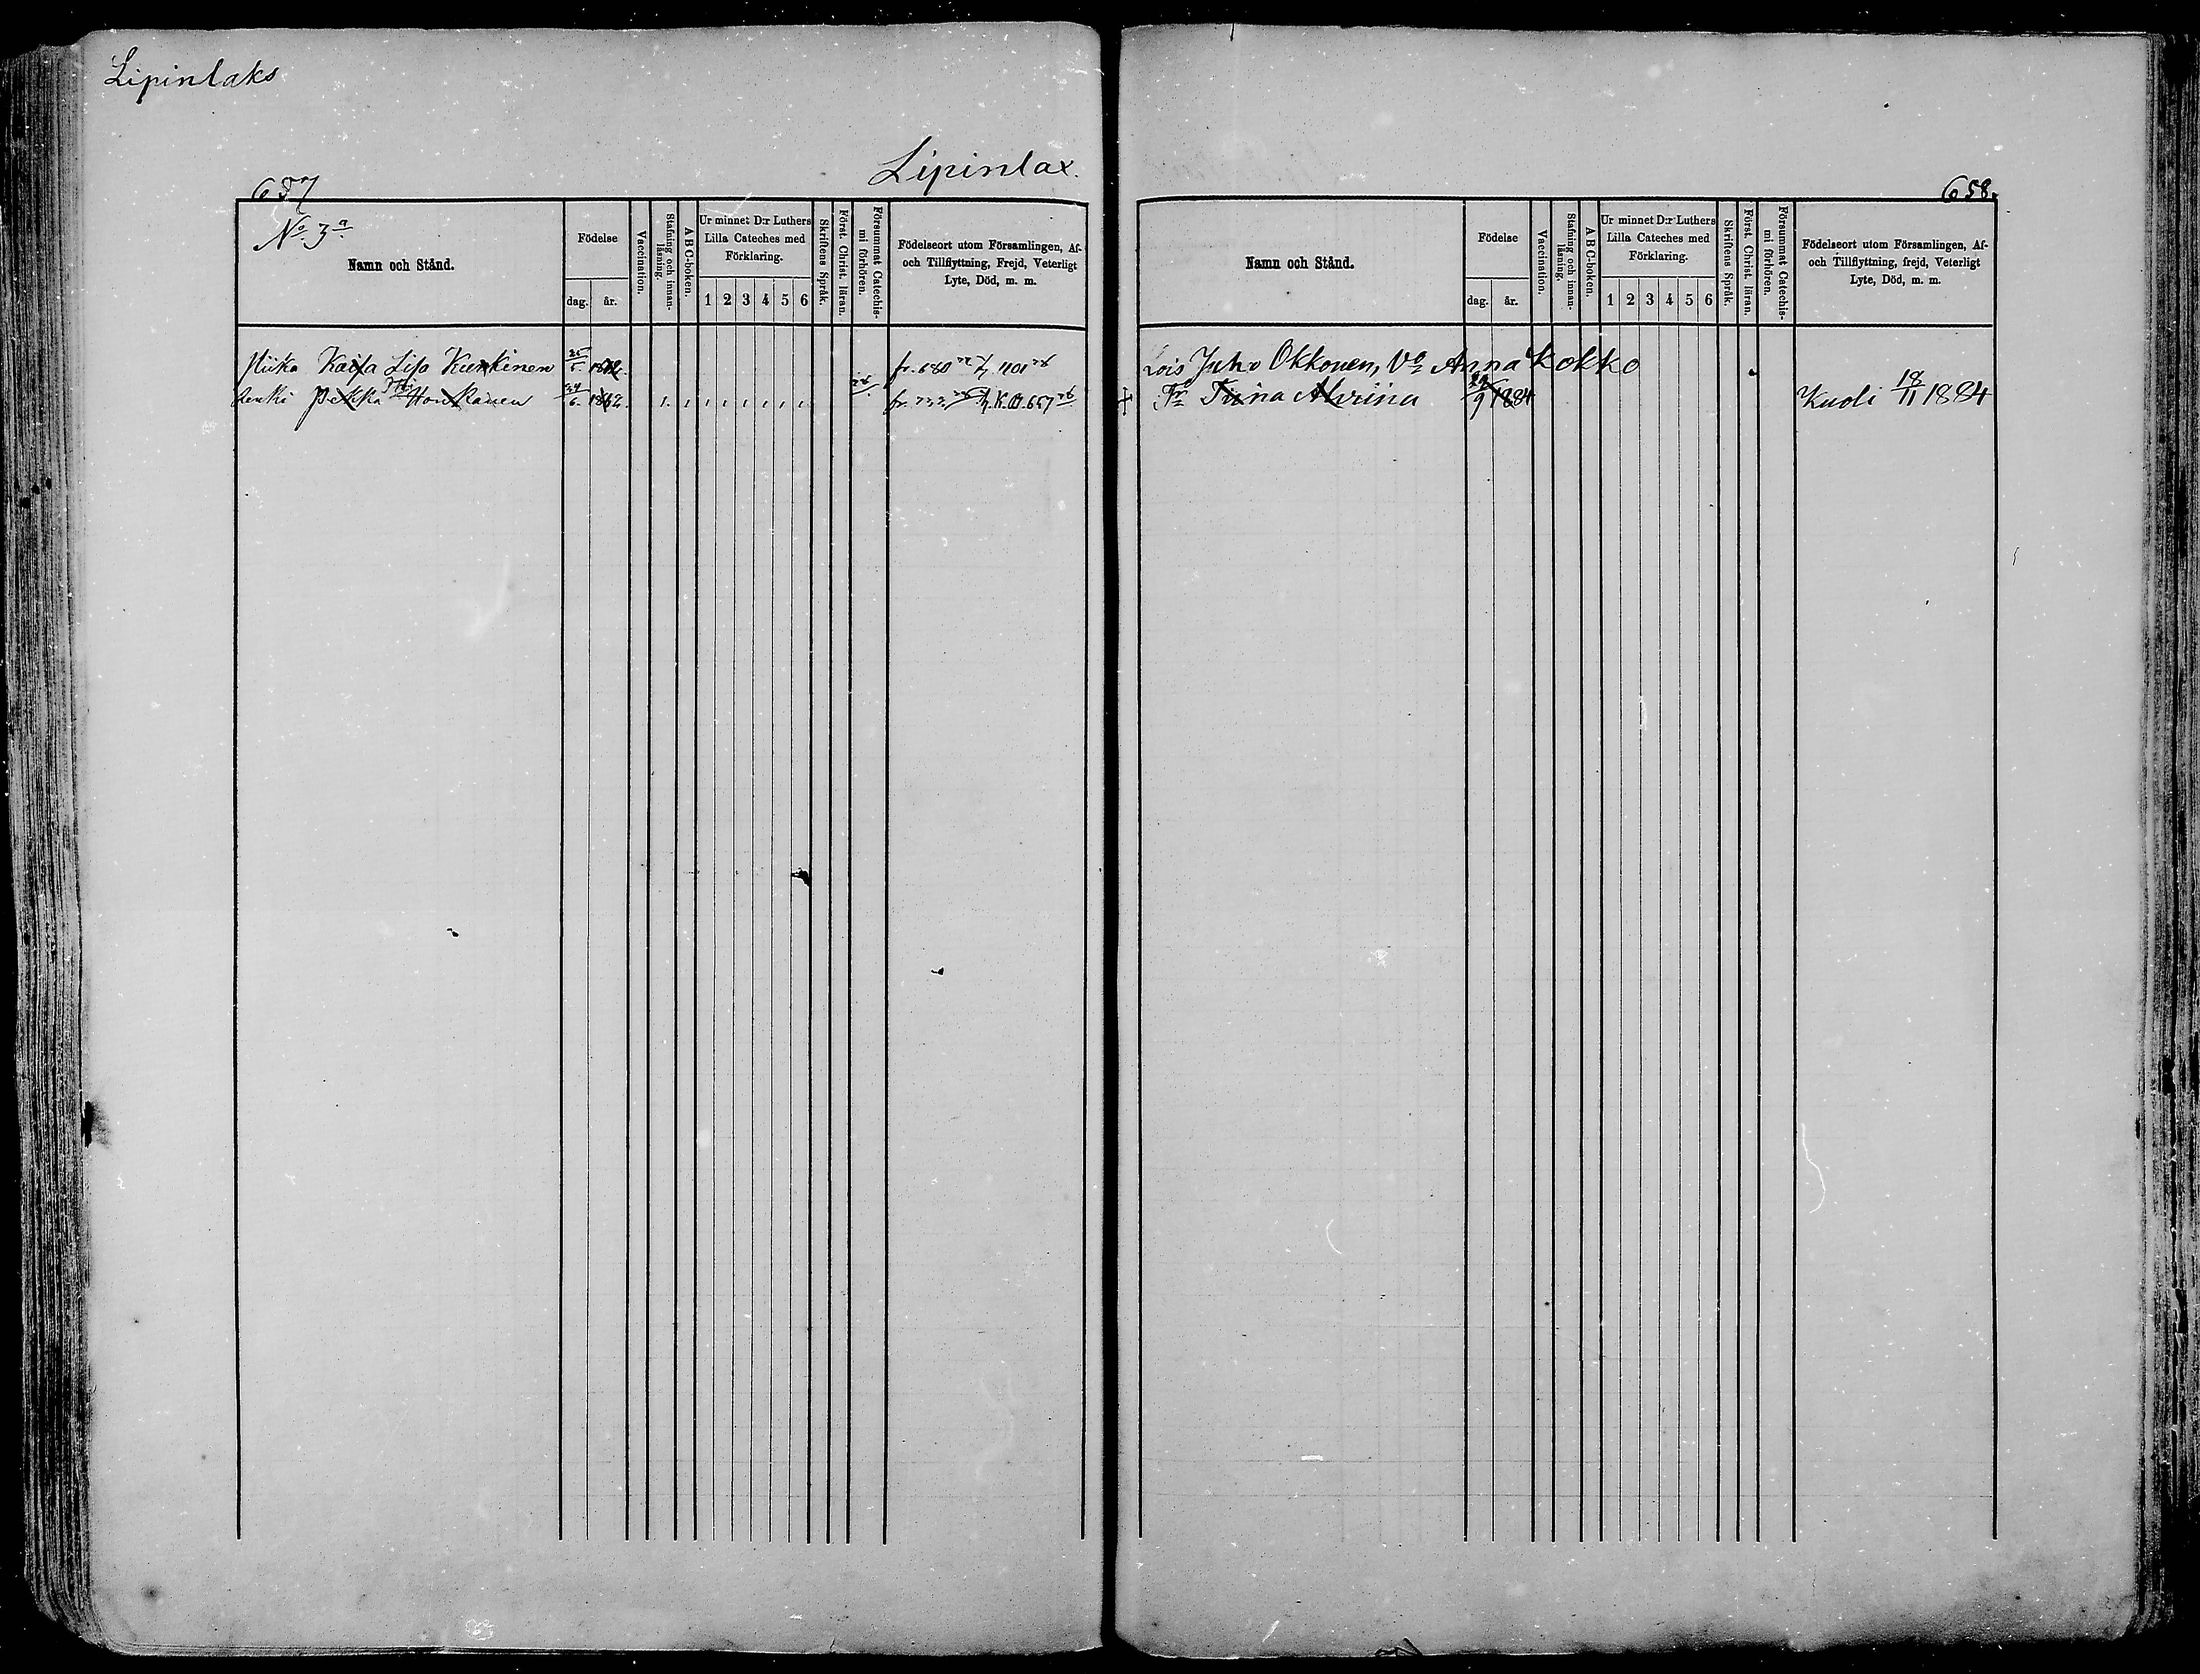 Lipinlaks
Lipinlax.
657
No. 3a
Namn och Stånd.
Födelse
dag. år.
Vaccination.
Stafning och innan-
läsning.
A B C-boken.
Ur minnet D:r Luthers
Lilla Cateches med
Förklaring.
1 2 3 4 5 6
Skriftens Språk.
Först. Christ. läran.
Försummat Catechis-
mi förhören.
Födelseort utom Församlingen, Af-
och Tillflyttning, Frejd, Veterligt
Lyte, Död, m. m.
Piika Kaisa Lisa Kunkinen 25/5 fr. 680 1101 76
Renki Pekka Honkanen 24/6 1862. fr. K.B. 657 76
658.
Namn och Stånd.
Födelse
dag. år.
Vaccination.
Stafning och innan-
läsning.
A B C-boken.
Ur minnet D:r Luthers
Lilla Cateches med
Förklaring.
1 2 3 4 5 6
Skriftens Språk.
Först. Christ. läran.
Försummat Catechis-
mi förhören.
Födelseort utom Församlingen, Af-
och Tillflyttning, frejd, Veterligt
Lyte, Död, m. m.
Lois Juho Okkonen, Vo Anna Kokko
Tr Tiina Alviina 9 1884 Kuoli 18/11 1884